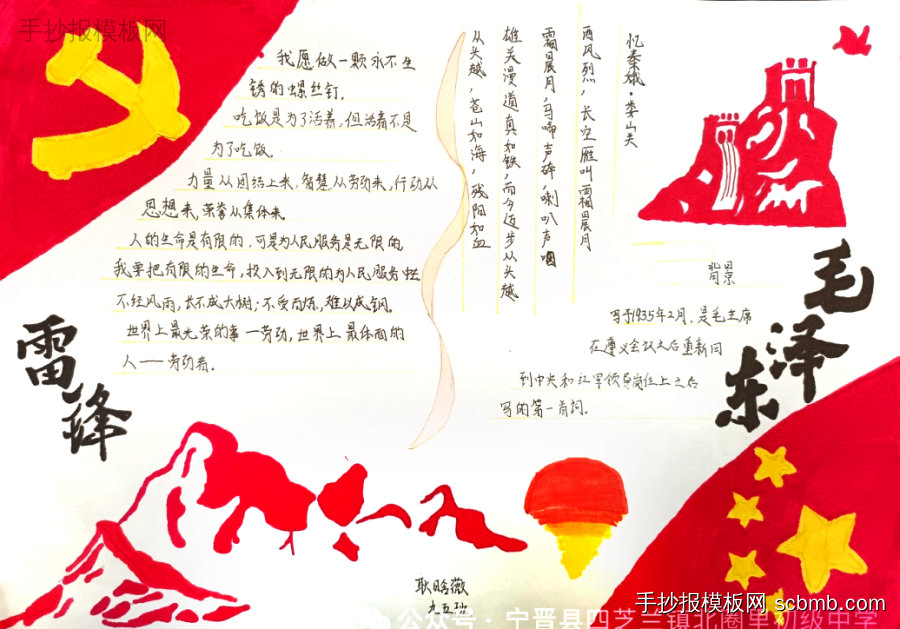 手抄报模板网
我愿做一颗永不生
锈的螺丝钉。
吃饭是为了活着，但活着不是
为了吃饭。
力量从团结上来，智慧从劳动来，行动从
思想来，荣誉从集体来
人的生命是有限的，可是为人民服务是无限的
我要把有限的生命，投入到无限的为人民服务中去
不经风雨，长不成大树；不受百炼，难以成钢。
世界上最光荣的事——劳动，世界上最体面的
人——劳动者。
雷锋
忆秦娥·娄山关
西风烈，长空雁叫霜晨月
霜晨月，马啼声碎，喇叭声咽
雄关漫道真如铁，而今迈步从头越
从头越，苍山如海，残阳如血
毛泽东
写于1935年2月，是毛主席
在遵义会议之后重新回
到中央和红军领导岗位上之后
写的第一首词。
九五班
公众号·宁晋县四芝兰镇北圈里初级中学
手抄报模板网 scbmb.com